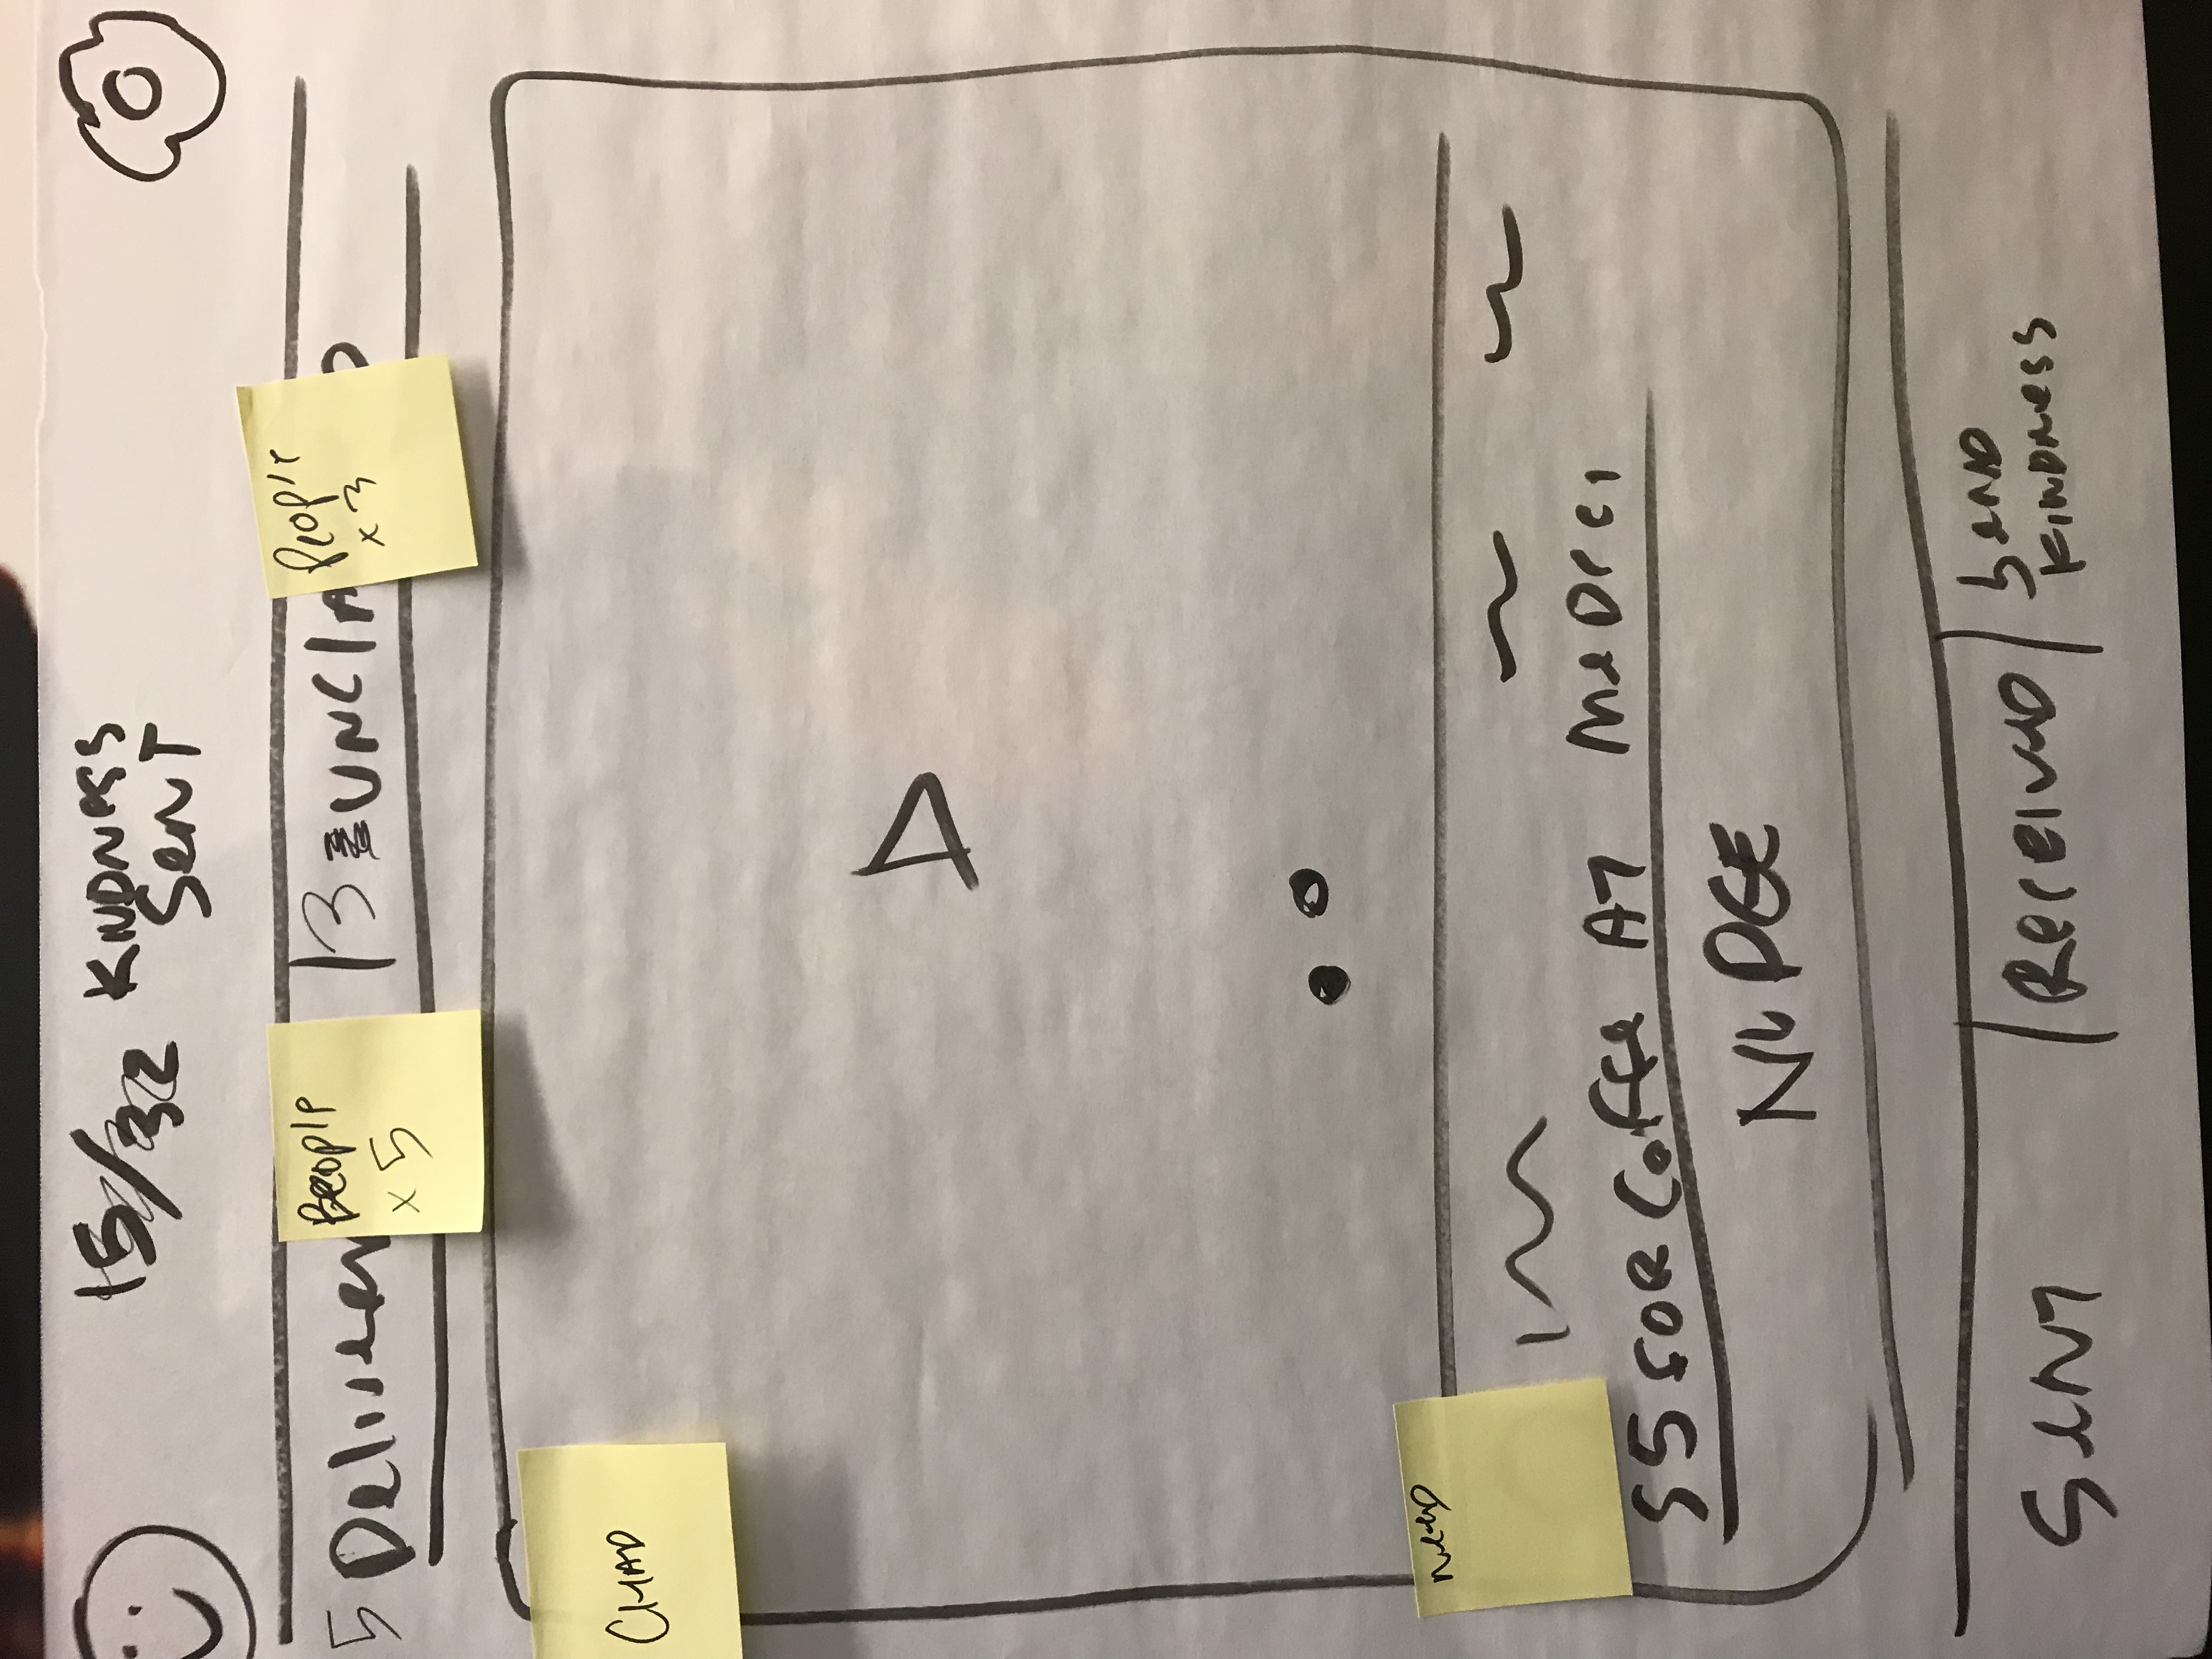 15/32 KINDNESS
SENT
5 Deliver
People
x 5
13 UNCLA
People
x 3
D
CHAD
NEED
$5 FOR COFFEE AT MEDICI
NUDGE
SENT
RECEIVED
SEND
KINDNESS